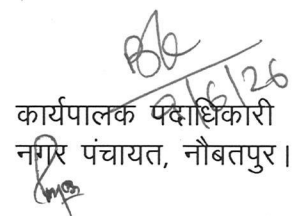 2/6/26
कार्यपालक पदाधिकारी
नगर पंचायत, नौबतपुर।